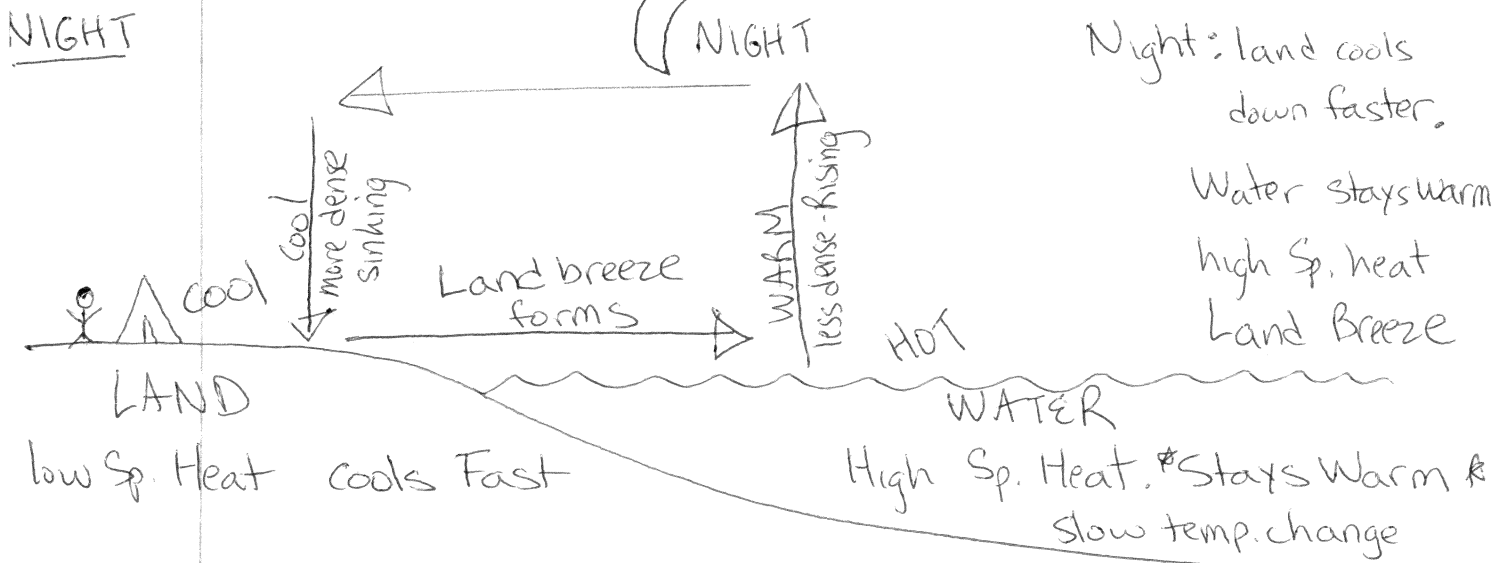 NIGHT
NIGHT
Night: land cools
down faster.
Water stays warm
high Sp. heat
Land Breeze
cool
more dense
sinking
WARM
less dense-Rising
Land breeze
forms
cool
HOT
LAND
WATER
low Sp. Heat cools Fast
High Sp. Heat. *Stays Warm *
slow temp. change